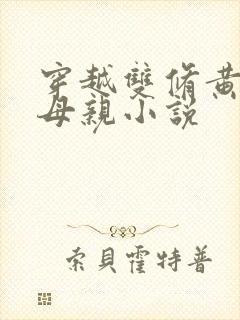 穿越雙脩黃
母親小説
索貝霍特普